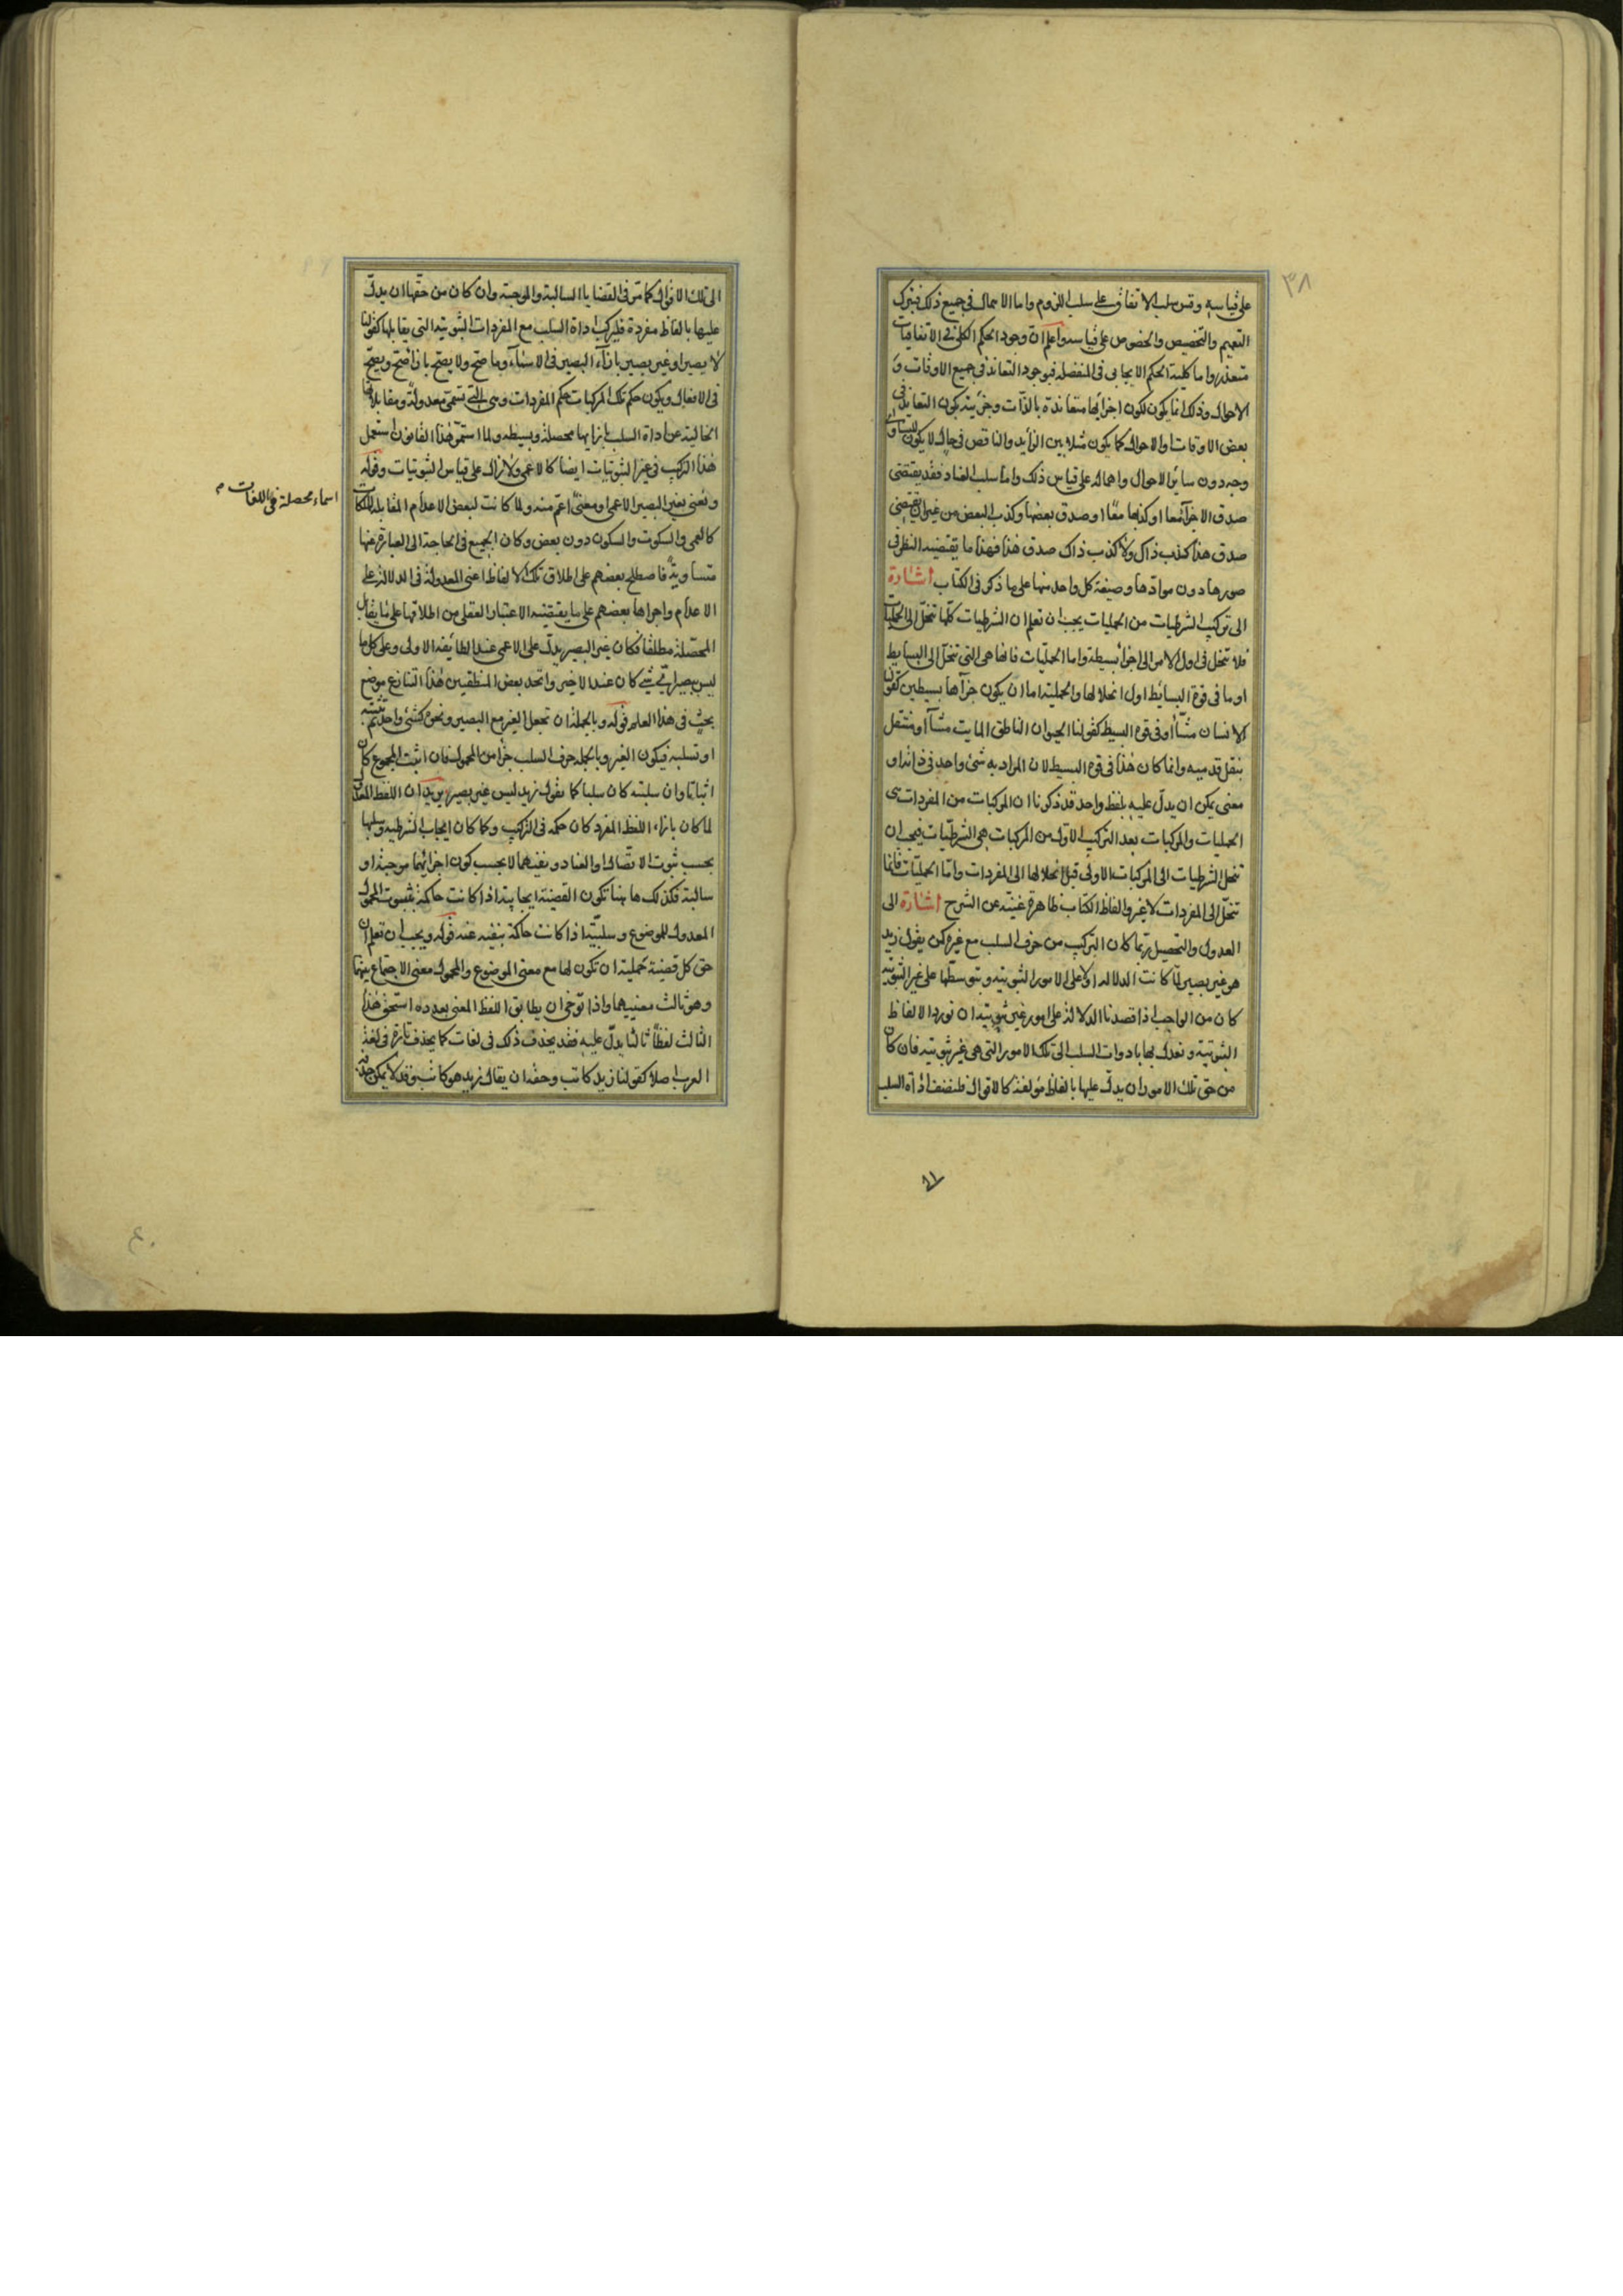 ٣٨
على قياسه وقس سلب الاتفاق على سلب اللزوم واما الاهمال فى جميع ذلك فبترك
التعميم والتخصيص والخصوص على قياسه واعلم ان وجود الحكم الكلى فى الاتفاقيات
متعذر واما كلية الحكم الايجابى فى المنفصلة فبوجود التعاند فى جميع الاوقات و
الاحوال وذلك انما يكون لكون اجزائها متعاندة بالذات وجزئيته بكون التعاند فى
بعض الاوقات والاحوال كما يكون مثلا بين الزايد والناقص فى حال لا يكون للتساوى
وجه دون ساير الاحوال واهماله على قياس ذلك واما سلب العناد فقد يقتضى
صدق الاجزآء معا او كذبها معًا او صدق بعضها وكذب البعض من غير ان يقتضى
صدق هذا كذب ذاك ولا كذب ذاك صدق هذا فهذا ما يقتضيه النظر فى
صورها دون موادها وصيغة كل واحد منها على ما ذكر فى الكتاب اشارة
الى تركيب الشرطيات من الحمليات يجب ان تعلم ان الشرطيات كلها تنحل الى الحمليات
فلا تنحل فى اول الامر الى اجزا بسيطة واما الحمليات فانها هى التى تنحل الى البسايط
او ما فى قوة البسائط اول انحلالها والحملية اما ان يكون جزآها بسيطين كقولنا
الانسان مشّاء او فى قوة البسيط كقولنا الحيوان الناطق المايت مشّآ او منتقل
بنقل قدميه وانما كان هذا فى قوة البسيط لان المراد به شئ واحد فى ذاته او
معنى يمكن ان يدل عليه بلفظ واحد قد ذكرنا ان المركبات من المفردات هى
الحمليات والمركبات بعد التركيب الاول من المركبات هى الشرطيات فيجب ان
تنحل الشرطيات الى المركبات الاولى قبل انحلالها الى المفردات واما الحمليات فانما
تنحل الى المفردات لا غير والفاظ الكتاب ظاهرة غنية عن الشرح اشارة الى
العدول والتحصيل ربما كان التركيب من حرف السلب مع غيره كمن يقول زيد
هو غير بصير لما كانت الدلالة اولا على الامور الثبوتية وبتوسطها على غير الثبوتية
كان من الواجب اذا قصدنا الدلالة على امور غير ثبوتية ان نورد الالفاظ
الثبوتية ونعدل بها بادوات السلب الى تلك الامور التى هى غير ثبوتية فان كان
من حق تلك الامور ان يدل عليها بالفاظ مؤلفة كالاقوال فلنضف اداة السلب
الى تلك الاقوال كما مر فى القضايا السالبة والموجبة وان كان من حقها ان يدل
عليها بالفاظ مفردة فليركب اداة السلب مع المفردات الثبوتية التى يقابلها كقولنا
لا بصير او غير بصير بازآء البصير فى الاسماء وما صح ولا يصح بازآ صح ويصح
فى الافعال ويكون حكم تلك المركبات حكم المفردات وهى التى تسمى معدولة ومقابلاتها
الخالية عن اداة السلب بازايها محصلة وبسيطة ولما استمر هذا القانون استعمل
هذا التركيب فى غير الثبوتيات ايضا كالاعمى ولا يزال على قياس الثبوتيات وقوله
ونعنى بغير البصير الاعمى او معنىً اعم منه ولما كانت لبعض الاعدام المقابلة للملكات
اسماء محصلة فى اللغات م
كالعمى والسكوت والسكون دون بعض وكان الجميع فى الحاجة الى العبارة عنها
متساوية فاصطلح بعضهم على اطلاق تلك الالفاظ اعنى المعدولة فى الدلالة على
الاعدام واجراها بعضهم على ما يقتضيه الاعتبار العقلى من اطلاقها على ما يقابل
المحصلة مطلقا فكان غير البصير يدل على الاعمى عند الطايفة الاولى وعلى كل ما
ليس ببصير اى شئ كان عند الاخير واتخد بعض المنطقيين هذا التنازع موضع
بحث فى هذا العلم قوله وبالجملة ان تجعل الغير مع البصير ونحوه كشئ واحد ثم تثبته
او تسلبه فيكون الغير وبالجملة حرف السلب جزأ من المحمول فان اثبت المجموع كان
اثباتا وان سلبته كان سلبا كما نقول زيد ليس غير بصير يريد ان اللفظ المعدول
لما كان بازاء اللفظ المفرد كان حكمه فى التركيب وكما كان ايجاب الشرطية وسلبها
بحسب ثبوت الاتصال والعناد ونفيهما لا بحسب كون اجزائهما موجبة او
سالبة فكذلك هاهنا تكون القضية ايجابية اذا كانت حاكمة بثبوت المحمول
المعدول للموضوع وسلبية اذا كانت حاكمة بنفيه عنه قوله ويجب ان تعلم ان
حق كل قضية حملية ان تكون لها مع معنى الموضوع والمحمول معنى الاجتماع بينهما
وهو ثالث معنييهما واذا توخى ان يطابق اللفظ المعنى بعدده استحق هذا
الثالث لفظًا ثالثا يدل عليه فقد يحذف ذلك فى لغات كما يحذف تارة فى لغة
العرب اصلا كقولنا زيد كاتب وحقه ان يقال زيد هو كاتب وقد لا يمكن حذفه